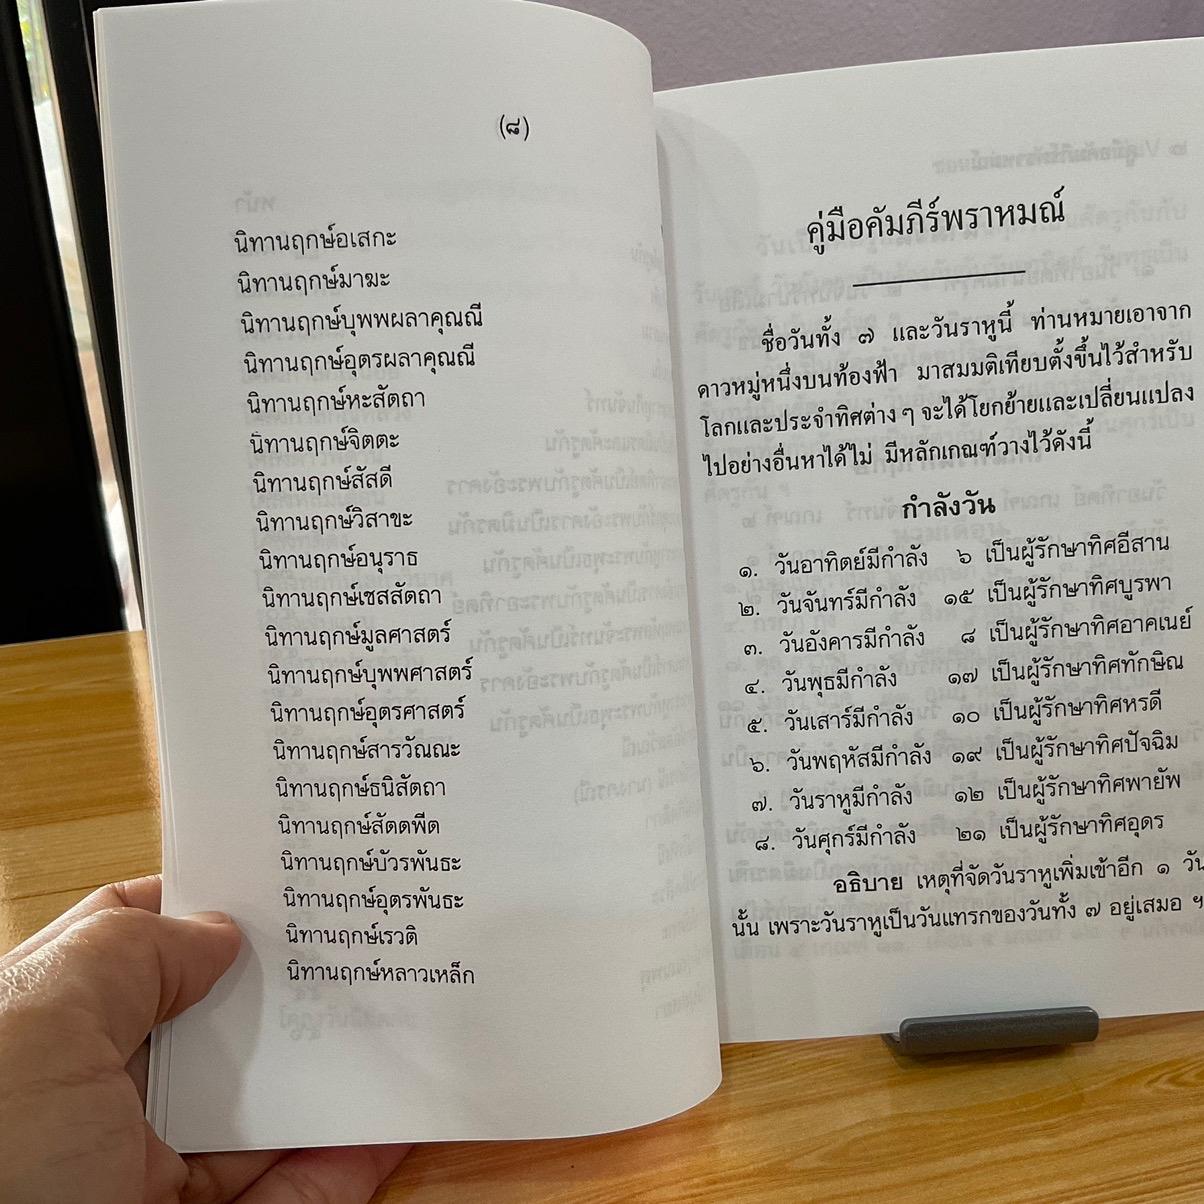 (๘)
นิทานฤกษ์อเสกะ
นิทานฤกษ์มาฆะ
นิทานฤกษ์บุพพผลาคุณณี
นิทานฤกษ์อุตรผลาคุณณี
นิทานฤกษ์หะสัตถา
นิทานฤกษ์จิตตะ
นิทานฤกษ์สัสดี
นิทานฤกษ์วิสาขะ
นิทานฤกษ์อนุราธ
นิทานฤกษ์เชสสัตถา
นิทานฤกษ์มูลศาสตร์
นิทานฤกษ์บุพพศาสตร์
นิทานฤกษ์อุตรศาสตร์
นิทานฤกษ์สารวัณณะ
นิทานฤกษ์ธนิสัตถา
นิทานฤกษ์สัตตพีด
นิทานฤกษ์บัวรพันธะ
นิทานฤกษ์อุตรพันธะ
นิทานฤกษ์เรวติ
นิทานฤกษ์หลาวเหล็ก
คู่มือคัมภีร์พราหมณ์
ชื่อวันทั้ง ๗ และวันราหูนี้ ท่านหมายเอาจาก
ดาวหมู่หนึ่งบนท้องฟ้า มาสมมติเทียบตั้งขึ้นไว้สำหรับ
โลกและประจำทิศต่าง ๆ จะได้โยกย้ายและเปลี่ยนแปลง
ไปอย่างอื่นหาได้ไม่ มีหลักเกณฑ์วางไว้ดังนี้
กำลังวัน
๑. วันอาทิตย์มีกำลัง ๖ เป็นผู้รักษาทิศอีสาน
๒. วันจันทร์มีกำลัง ๑๕ เป็นผู้รักษาทิศบูรพา
๓. วันอังคารมีกำลัง ๘ เป็นผู้รักษาทิศอาคเนย์
๔. วันพุธมีกำลัง ๑๗ เป็นผู้รักษาทิศทักษิณ
๕. วันเสาร์มีกำลัง ๑๐ เป็นผู้รักษาทิศหรดี
๖. วันพฤหัสมีกำลัง ๑๙ เป็นผู้รักษาทิศปัจฉิม
๗. วันราหูมีกำลัง ๑๒ เป็นผู้รักษาทิศพายัพ
๘. วันศุกร์มีกำลัง ๒๑ เป็นผู้รักษาทิศอุดร
อธิบาย เหตุที่จัดวันราหูเพิ่มเข้าอีก ๑ วัน
นั้น เพราะวันราหูเป็นวันแทรกของวันทั้ง ๗ อยู่เสมอ ฯ